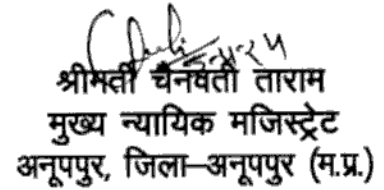 श्रीमती चैनवती ताराम
मुख्य न्यायिक मजिस्ट्रेट
अनूपपुर, जिला–अनूपपुर (म.प्र.)